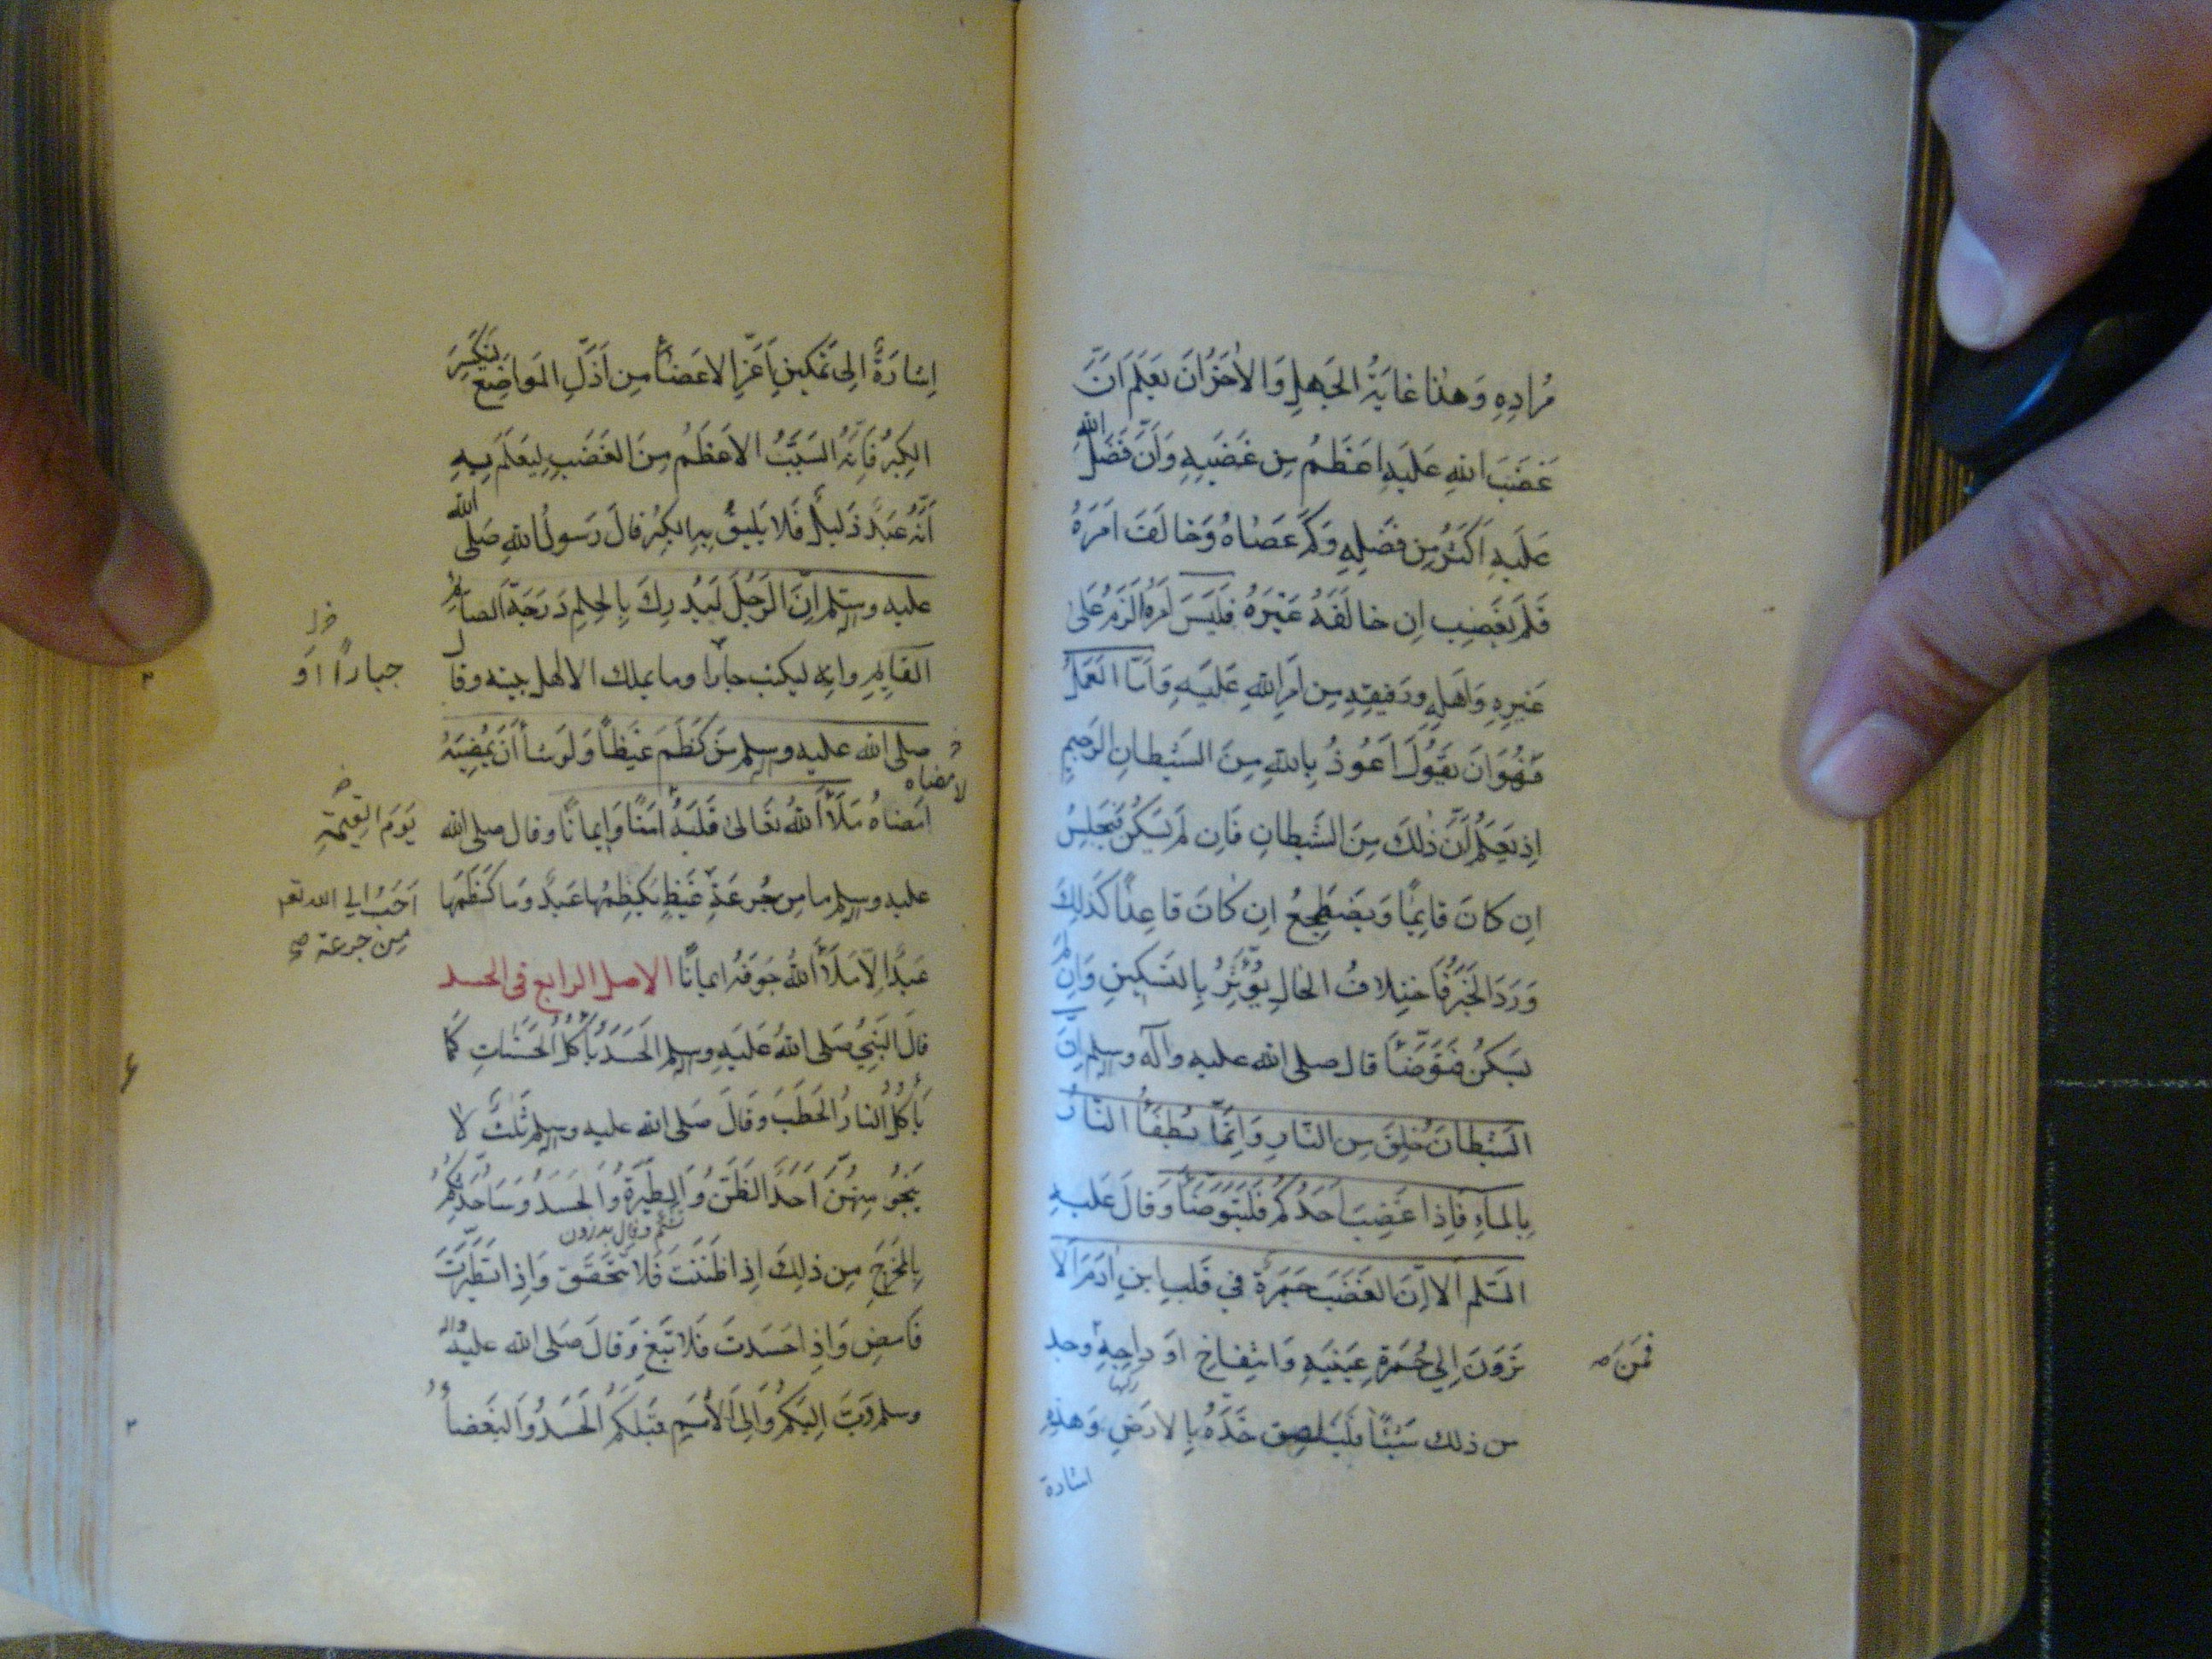 مُرادِهِ وَهذا غايَةُ الجَهلِ وَالأخرُ أنَ يَعلَمَ انَّ
غَضَبَ اللهِ عَلَيهِ اعَظَمُ مِن غَضَبِهِ وَانَّ فَضَلَ اللهِ
عَلَيهِ اَكثَرُ مِن فَضلِهِ وَكَم عَصاهُ وَخالَفَ امَرَهُ
فَلَم يَغضِب اِن خالَفَهُ غَيرَهُ فَلَيسَ امرُهُ الزَمُ عَلىٰ
غَيرِهِ وَاَهلِهِ ورَفيقِهِ مِن امَرِ اللهِ عَلَيهِ وَاَمّا العَمَلُ
فَهُوَ اَنَ يَقوُلَ اَعوُذُ بِاللهِ مِنَ الشَيطانِ الرَجيمِ
اِذ يَعلَمُ اَنَّ ذٰلكَ مِنَ الشَيطانِ فَاِن لَم يَسكُن فَيَجلِسُ
اِن كانَ قايِمًا وَيَضطَجِعُ اِن كانَ قاعِدًا كَذٰلِكَ
وَرَدَ الخَبَرُ فَاختِلافُ الحالِ يُؤَثِّرُ بِالتَسكينِ وَاِن لم
يَسكُن فَتَوَضّأ قال صلى الله عليه وآله وسلم اِنَّ
الشَيطانَ خُلِقَ مِن النّارِ وَاِنَّما يُطفَأُ النّارُ
بِالماءِ فَاِذا غَضِبَ اَحَدُكُم فَليَتَوَضّأ وَقالَ عَلَيهِ
السّلم اَلا اِنَّ الغَضَبَ جَمرَةٌ في قَلبِ ابنِ ادَمَ اَلا
تَرَونَ اِلي حُمرَةِ عَينَيهِ وَانتِفاخِ اوَداجِهِ وجد
فمَن
من ذلك شَيئًا فَليُلصِق خَدَّهُ بِالارَضِ وَهذِهِ
اشارة
اِشارَةٌ الِى تَمكينِ اَعَزِّ الاعَضاءِ مِن اَذَلِّ المَواضِعِ
الكِبرُ فَاِنَّهُ السَبَبُ الاَعظَمُ مِنَ الغَضَبِ لِيَعلَمَ بِهِ
اَنَّهُ عَبدٌ ذَليلٌ فَلا يَليقُ بِهِ الكِبرُ قالَ رَسولُ اللهِ صَلى الله
عليه وسلم اِنَّ الرَجُلَ لَيُدرِكُ بِالحِلمِ دَرَجَةَ الصائمِ
القايِمِ وانه ليكتب جبارا وما يملك الا اهل بيته وقال
جبارًا اَو
صلى الله عليه وسلم مَن كَظَمَ غَيظًا وَلَو شاءَ اَنَ يُمضِيَهُ
لامضاه
امَضاهُ مَلَأَ اللهُ تَعَالىٰ قَلبَهُ امَنًا وَايمانًا وقال صلى الله
يَومَ القِيمَةِ
عليه وسلم ما مِن جُرعَةِ غَيظٍ يَكظِمُها عَبدٌ وَما كَظَمَها
اَحَبُ الي الله تعم
مِن جرعة
عَبدٌ اِلّا مَلَأَ اللهُ جَوفَهُ ايمانًا الاصل الرابع فى الحسد
قالَ النَبِيُ صَلى اللهُ عَلَيهِ وسلم الحَسَدُ يَأكُلُ الحَسَناتِ كَما
يَأكُلُ النارُ الحَطَبَ وَقالَ صَلى الله عليه وسلم ثَلثٌ لا
يَنجُو مِنهُنَّ اَحَدٌ الظَنُّ وَالطِيَرَةُ وَالحسدُ وَسَاُحَدِّثُكُم
بِالمَخرَجِ مِن ذلِكَ اِذا ظَنَنتَ فَلا تَحَقَّق وَاِذا تَطَيَّرتَ
فَامضِ وَاِذا حَسَدتَ فَلا تَبغِ وَقالَ صَلى الله عليه واله
وسلم دَبَّ اِلَيكُم وَالِى الأُمَمِ قَبلَكُم الحَسَدُ وَالبَغضاءُ